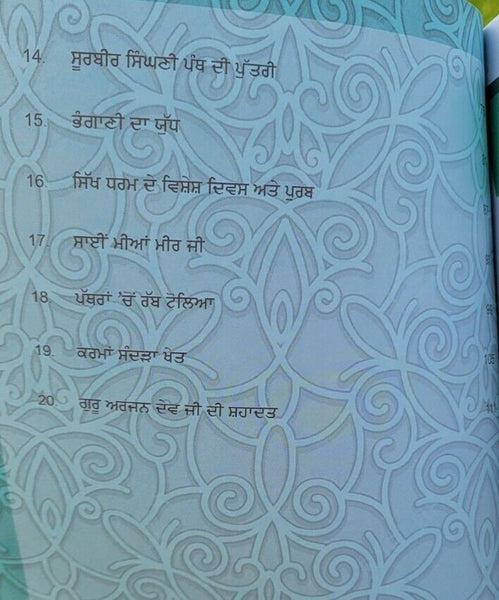 14. ਸੂਰਬੀਰ ਸਿੰਘਣੀ ਪੰਥ ਦੀ ਪੁੱਤਰੀ
15. ਭੰਗਾਣੀ ਦਾ ਯੁੱਧ
16. ਸਿੱਖ ਧਰਮ ਦੇ ਵਿਸ਼ੇਸ਼ ਦਿਵਸ ਅਤੇ ਪੁਰਬ
17. ਸਾਈਂ ਮੀਆਂ ਮੀਰ ਜੀ
18. ਪੱਥਰਾਂ 'ਚੋਂ ਰੱਬ ਟੋਲਿਆ
19. ਕਰਮਾਂ ਸੰਦੜਾ ਖੇਤ
20. ਗੁਰੂ ਅਰਜਨ ਦੇਵ ਜੀ ਦੀ ਸ਼ਹਾਦਤ